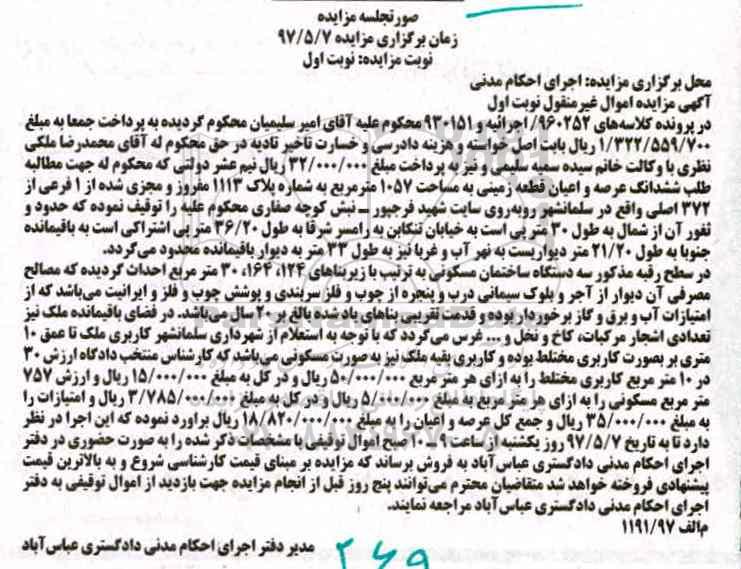 صورتجلسه مزایده
زمان برگزاری مزایده ۹۷/۵/۷
نوبت مزایده: نوبت اول
محل برگزاری مزایده: اجرای احکام مدنی
آگهی مزایده اموال غیرمنقول نوبت اول
در پرونده کلاسه‌های ۹۶۰۲۵۲/ اجرائیه و ۹۳۰۱۵۱ محکوم علیه آقای امیر سلیمیان محکوم گردیده به پرداخت جمعا به مبلغ
۱/۳۲۲/۵۵۹/۷۰۰ ریال بابت اصل خواسته و هزینه دادرسی و خسارت تاخیر تادیه در حق محکوم له آقای محمدرضا ملکی
نظری با وکالت خانم سیده سمیه سلیمی و نیز به پرداخت مبلغ ۳۲/۰۰۰/۰۰۰ ریال نیم عشر دولتی که محکوم له جهت مطالبه
طلب ششدانگ عرصه و اعیان قطعه زمینی به مساحت ۱۰۵۷ مترمربع به شماره پلاک ۱۱۱۳ مفروز و مجزی شده از ۱ فرعی از
۳۷۲ اصلی واقع در سلمانشهر روبه‌روی سایت شهید فرجپور ــ نبش کوچه صفاری محکوم علیه را توقیف نموده که حدود و
ثغور آن از شمال به طول ۳۰ متر پی است به خیابان تنکابن به رامسر شرقا به طول ۳۶/۲۰ متر پی اشتراکی است به باقیمانده
جنوبا به طول ۲۱/۲۰ متر دیواریست به نهر آب و غربا نیز به طول ۳۳ متر به دیوار باقیمانده محدود می‌گردد.
در سطح رقبه مذکور سه دستگاه ساختمان مسکونی به ترتیب با زیربناهای ۱۲۴، ۱۶۴، ۳۰ متر مربع احداث گردیده که مصالح
مصرفی آن دیوار از آجر و بلوک سیمانی درب و پنجره از چوب و فلز سربندی و پوشش چوب و فلز و ایرانیت می‌باشد که از
امتیازات آب و برق و گاز برخوردار بوده و قدمت تقریبی بناهای یاد شده بالغ بر ۲۰ سال می‌باشد. در فضای باقیمانده ملک نیز
تعدادی اشجار مرکبات، کاخ و نخل و ... غرس می‌گردد که با توجه به استعلام از شهرداری سلمانشهر کاربری ملک تا عمق ۱۰
متری بر بصورت کاربری مختلط بوده و کاربری بقیه ملک نیز به صورت مسکونی می‌باشد که کارشناس منتخب دادگاه ارزش ۳۰
در ۱۰ متر مربع کاربری مختلط را به ازای هر متر مربع ۵۰/۰۰۰/۰۰۰ ریال و در کل به مبلغ ۱۵/۰۰۰/۰۰۰ ریال و ارزش ۷۵۷
متر مربع مسکونی را به ازای هر متر مربع به مبلغ ۵/۰۰۰/۰۰۰ ریال و در کل به مبلغ ۳/۷۸۵/۰۰۰/۰۰۰ ریال و امتیازات را
به مبلغ ۳۵/۰۰۰/۰۰۰ ریال و جمع کل عرصه و اعیان را به مبلغ ۱۸/۸۲۰/۰۰۰/۰۰۰ ریال براورد نموده که این اجرا در نظر
دارد تا به تاریخ ۹۷/۵/۷ روز یکشنبه از ساعت ۹ــ۱۰ صبح اموال توقیفی با مشخصات ذکر شده را به صورت حضوری در دفتر
اجرای احکام مدنی دادگستری عباس‌آباد به فروش برساند که مزایده بر مبنای قیمت کارشناسی شروع و به بالاترین قیمت
پیشنهادی فروخته خواهد شد متقاضیان محترم می‌توانند پنج روز قبل از انجام مزایده جهت بازدید از اموال توقیفی به دفتر
اجرای احکام مدنی دادگستری عباس‌آباد مراجعه نمایند.
م‌الف ۱۱۹۱/۹۷
مدیر دفتر اجرای احکام مدنی دادگستری عباس‌آباد
۲۶۹